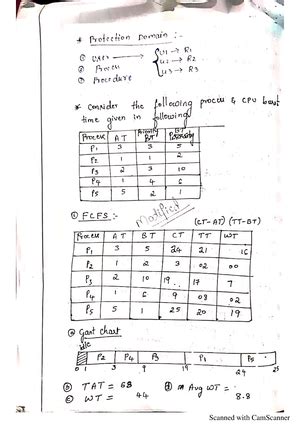 * Protection Domain :-
① user → { u1 → R1
② Process u2 → R2
③ Procedure u3 → R3
* Consider the following process & CPU burst
time given in following
Process AT Priority BT BT Priority
P1 3 3 5
P2 1 1 2
P3 2 3 10
P4 1 4 6
P5 5 2 1
① FCFS :- Modified (CT-AT) (TT-BT)
Process AT BT CT TT WT
P1 3 5 24 21 16
P2 1 2 3 02 00
P3 2 10 19 17 7
P4 1 6 9 08 02
P5 5 1 25 20 19
② Gant chart
idle
P2 P4 P3 P1 P5
0 1 3 9 19 24 25
③ TAT = 68 Avg WT =
④ WT = 44 8.8
Scanned with CamScanner